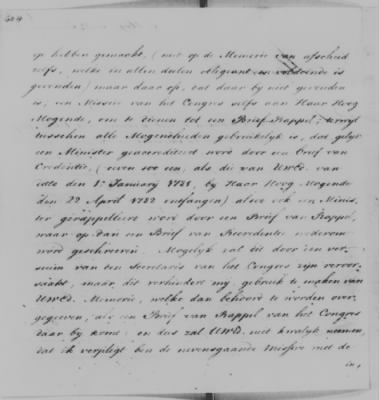 op hebben gemaakt, (niet op de Memorie van afscheid
zelfs, welke in allen deelen obligeant en voldoende is
gevonden) maar daar op, dat daar by niet gevonden
is, een Missive van het Congres zelfs aan Haar Hoog
Mogende, om te dienen tot een Brief Rappel; terwyl
tusschen alle Mogendheden gebruikelyk is, dat gelyk
een Minister geaccrediteerd word door een Brief van
Credentie, (even zoo een, als die van UWEd. van
dato den 1e January 1781, by Haar Hoog Mogende
den 22 April 1782 ontfangen) alzoo ook een Minis
ter gerappelleerd word door een Brief van Rappel,
waar op dan een Brief van Recredentie wederom
word geschreeven. Mogelyk zal dit door een ver-
zuim van den Secretaris van het Congres zyn veroor-
zaakt, maar dit verhindert my, gebruik te maken van
UWEd. Memorie, welke dan behoord te worden over-
gegeeven, als een Brief van Rappel van het Congres
daar by komt; en dus zal UWEd. niet kwalyk neemen,
dat ik verpligt ben de nevensgaande Missive met de
in,